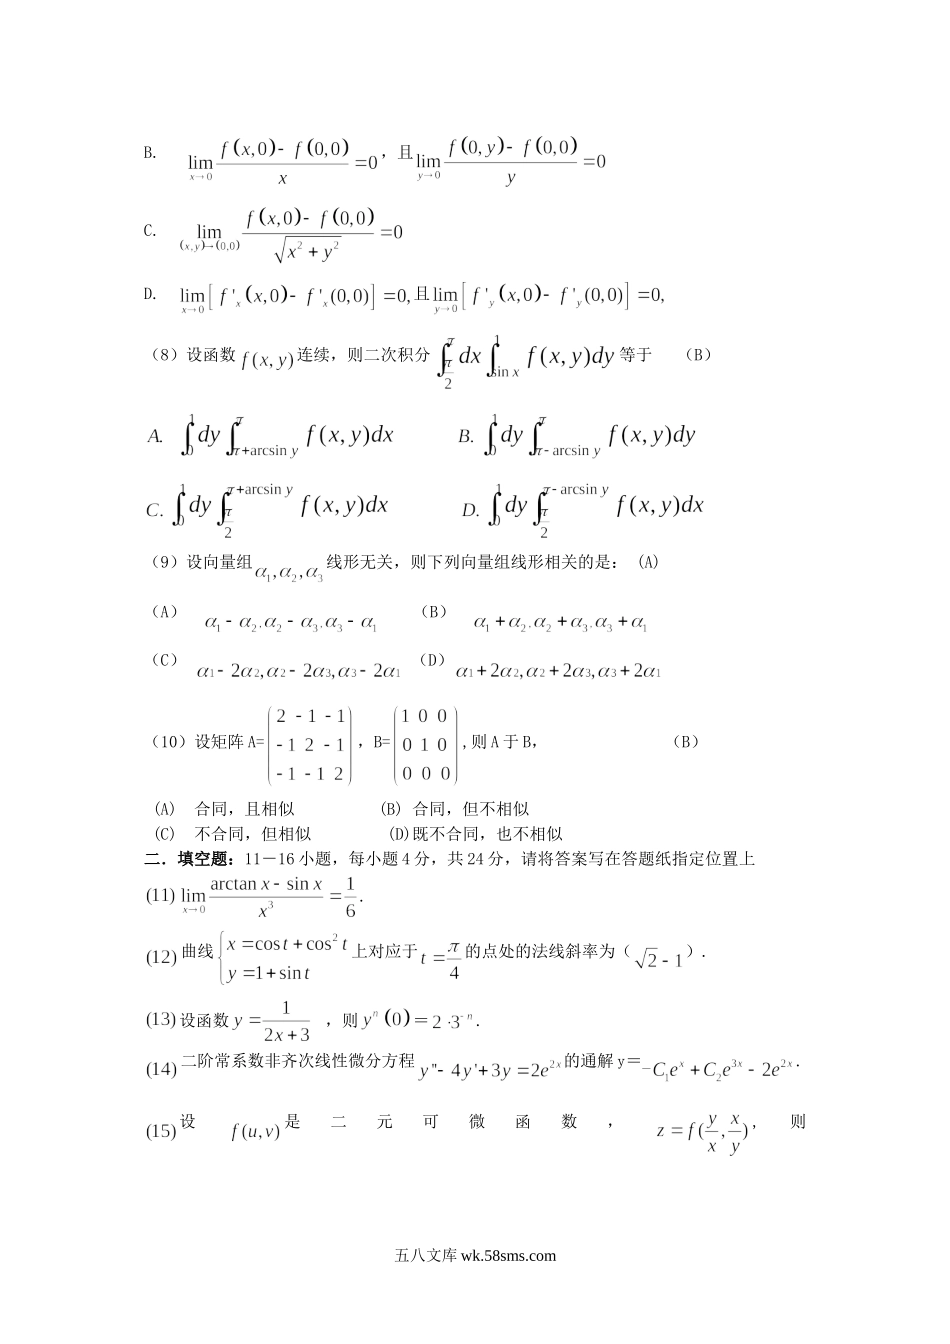 B. lim_{x→0} \frac{f(x,0)-f(0,0)}{x}=0，且lim_{y→0} \frac{f(0,y)-f(0,0)}{y}=0
C. lim_{(x,y)→(0,0)} \frac{f(x,0)-f(0,0)}{\sqrt{x^2+y^2}}=0
D. lim_{x→0}[f'_x(x,0)-f'_x(0,0)]=0,且lim_{y→0}[f'_y(x,0)-f'_y(0,0)]=0,
（8）设函数f(x,y)连续，则二次积分∫_{\frac{π}{2}}^{π}dx∫_{sin x}^{1}f(x,y)dy等于 （B）
A. ∫_0^1dy∫_{π+arcsin y}^{π}f(x,y)dx B. ∫_0^1dy∫_{π-arcsin y}^{π}f(x,y)dy
C. ∫_0^1dy∫_{\frac{π}{2}}^{π+arcsin y}f(x,y)dx D. ∫_0^1dy∫_{\frac{π}{2}}^{π-arcsin y}f(x,y)dx
（9）设向量组α_1,α_2,α_3线形无关，则下列向量组线形相关的是： (A)
（A） α_1-α_2.α_2-α_3.α_3-α_1 （B） α_1+α_2.α_2+α_3.α_3+α_1
（C） α_1-2α_2,α_2-2α_3,α_3-2α_1 （D）α_1+2α_2,α_2+2α_3,α_3+2α_1
（10）设矩阵 A=\begin{pmatrix}2&-1&-1\\-1&2&-1\\-1&-1&2\end{pmatrix}，B=\begin{pmatrix}1&0&0\\0&1&0\\0&0&0\end{pmatrix},则 A 于 B， （B）
(A) 合同，且相似 (B) 合同，但不相似
(C) 不合同，但相似 (D)既不合同，也不相似
二．填空题：11－16 小题，每小题 4 分，共 24 分，请将答案写在答题纸指定位置上
(11) lim_{x→0} \frac{arctan x-sin x}{x^3}=\frac{1}{6}.
(12)曲线\begin{cases}x=cos t+cos^2 t\\y=1+sin t\end{cases}上对应于t=\frac{π}{4}的点处的法线斜率为（\sqrt{2}-1）.
(13)设函数y=\frac{1}{2x+3}，则y^n(0)=2·3^{-n}.
(14)二阶常系数非齐次线性微分方程y''-4y'+3y=2e^{2x}的通解 y＝_C_1e^x+C_2e^{3x}-2e^{2x}.
(15)设f(u,v)是二元可微函数，z=f(\frac{y}{x},\frac{x}{y})，则
五八文库 wk.58sms.com